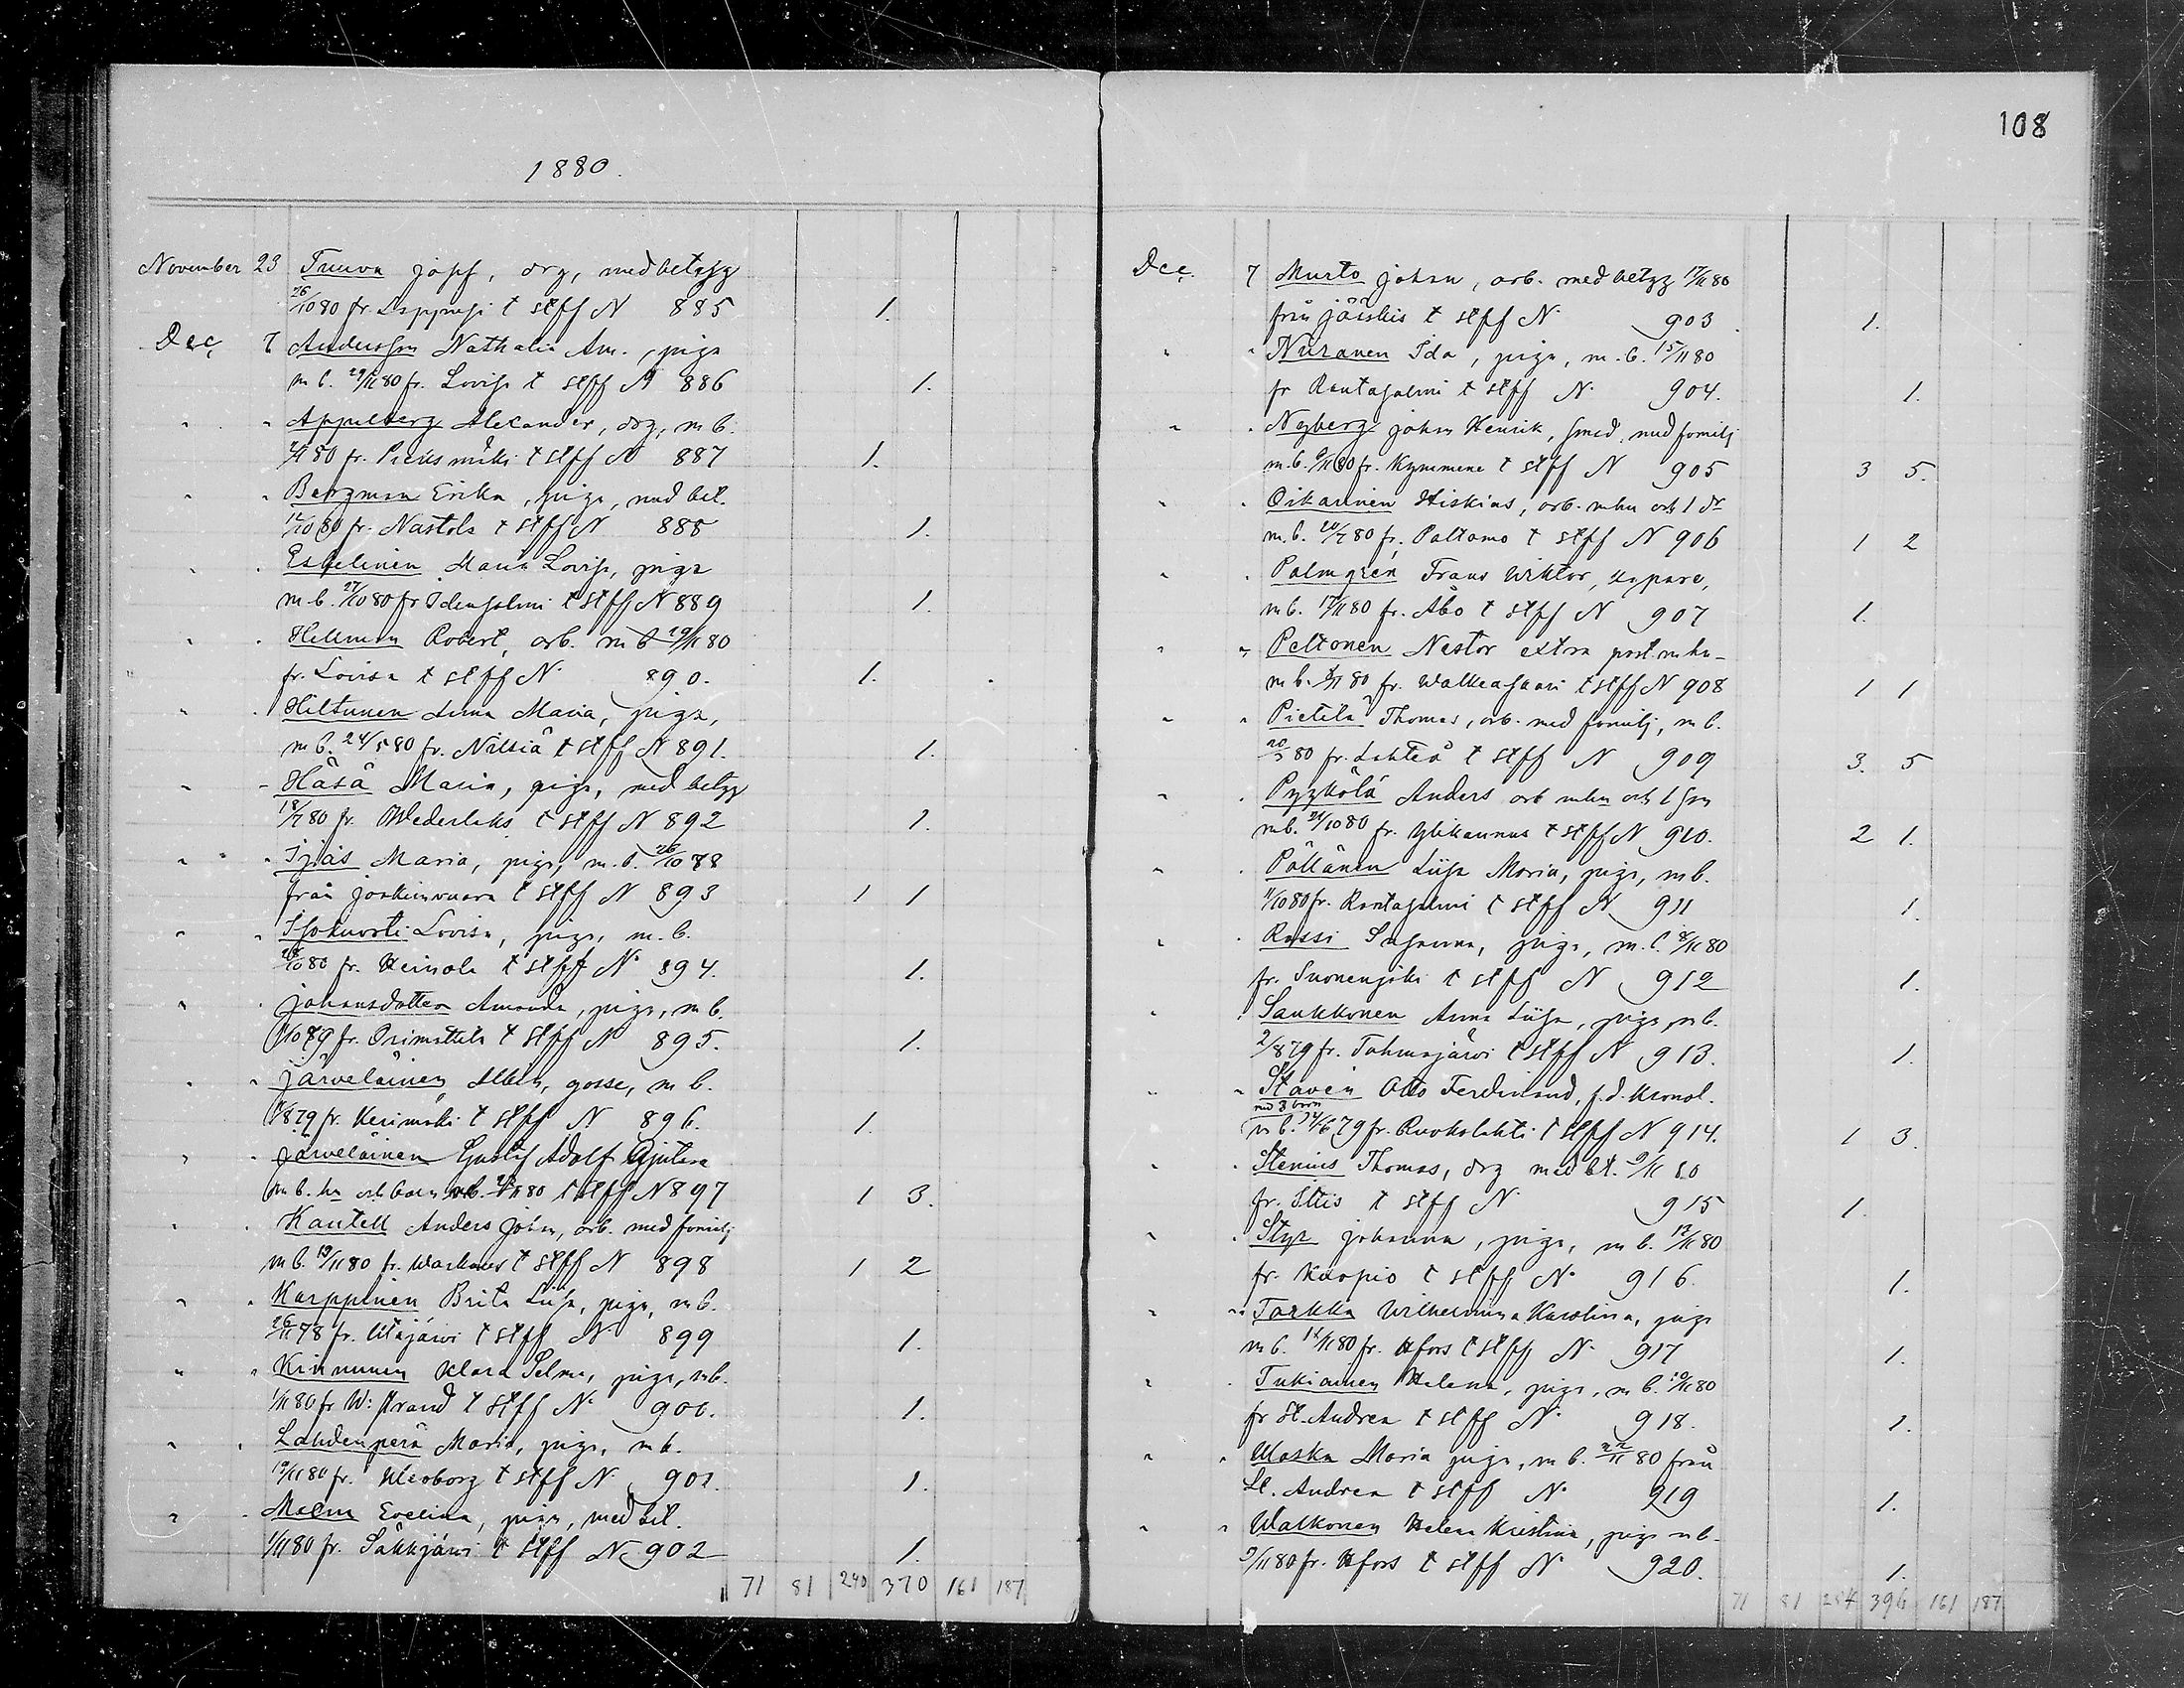 108
1880.
November 23 Tuuva Josef, drg, med betyg
26/10 80 fr. Lappvesi t stff N 885 1.
Dec. 7 Andersson Nathalia Am., piga
m b. 29/11 80 fr. Lovisa t stff N 886 1.
" " Appelberg Alexander, drg, m b.
2/11 80 fr. Pieksmäki t stff N 887 1.
" " Bergman Erika, piga, med bet.
12/10 80 fr. Nastola t stff N 888 1.
" " Eskelinen Maria Lovisa, piga
m b. 27/10 80 fr Idensalmi t stff N 889 1.
" " Hellman Robert, arb. m b 29/11 80
fr. Lovisa t stff N 890. 1.
" " Hiltunen Anna Maria, piga,
m b. 24/5 80 fr. Nilsiä t stff N 891. 1.
" " Häsä Maria, piga, med betyg
18/7 80 fr. Wederlaks t stff N 892 1.
" " Ijäs Maria, piga, m. b. 26/10 78
från Joskinvuara t stff N 893 1 1
" " Isokuorti Lovisa, piga, m. b.
28/10 80 fr. Heinola t stff N 894. 1.
" " Johansdotter Amanda, piga, m b.
/10 79 fr. Orimattila t stff N 895. 1.
" " Järveläinen Albin, gosse, m b.
/8 79 fr. Kerimäki t stff N 896. 1.
" " Järveläinen Gustaf Adolf
m b. hu och barn m b. /11 80 t stff N 897 1 3.
" " Kautell Anders Johan, arb. med familj
m b. 13/11 80 fr. Warkaus t stff N 898 1 2
" " Karppinen Brita Liisa, piga, m b.
26/11 78 fr. Utajärvi t stff N 899 1.
" " Kinnunen Klara Selma, piga, m b.
1/11 80 fr W: strand t stff N 900. 1.
" " Lahdenperä Maria, piga, m b.
19/11 80 fr. Uleåborg t stff N 901. 1.
" " Malm Evelina, piga, med bet.
1/11 80 fr. Säkkjärvi t stff N 902 1.
71 81 240 370 161 187
Dec. 7 Murto Johan, arb. med betyg 17/11 80
från Jääskis t stff N 903 1.
" " Nuranen Ida, piga, m. b. 15/11 80
fr Rantasalmi t stff N 904. 1.
" " Nyberg Johan Henrik, smed, med familj
m. b. 9/11 80 fr. Kymmene t stff N 905 3 5.
" " Oikarinen Hiskias, arb. m hu och 1 dr
m. b. 20/7 80 fr. Paltamo t stff N 906 1 2
" " Palmgren Frans Wiktor, kypare,
m b. 17/11 80 fr. Åbo t stff N 907 1.
" " Peltonen Nestor extra post. m hu
m b. 2/11 80 fr. Walkeasaari t stff N 908 1 1
" " Pietilä Thomas, arb. med familj, m b.
20/3 80 fr. Lahteå t stff N 909 3. 5
" " Pyykölä Anders arb m hu och 1 son
m b. 24/10 80 fr. Ylikannus t stff N 910. 2 1.
" " Pöllänen Liisa Maria, piga, m b.
11/10 80 fr. Rantasalmi t stff N 911 1.
" " Rassi Susanna, piga, m. b. 8/11 80
fr. Suonenjoki t stff N 912 1.
" " Saukkonen Anna Liisa, piga, m b.
2/8 79 fr. Tohmajärvi t stff N 913. 1.
" " Stavén Otto Ferdinand, f. d. kronol.
med 3 barn
m b. 24/6 79 fr. Ruokolahti t stff N 914. 1 3.
" " Stenius Thomas, drg med bt. 9/11 80
fr. Ittis t stff N 915 1.
" " Styr Johanna, piga, m b. 12/11 80
fr. Kuopio t stff N 916. 1.
" " Tarkka Wilhelmina Karolina, piga
m b. 14/11 80 fr. Hfors t stff N 917 1.
" " Tukiainen Helena, piga, m b. 10/11 80
fr St. Andrea t stff N 918. 1.
" " Waska Maria piga, m b. 22/11 80 från
St. Andrea t stff N 919 1.
" " Walkonen Helena Kristina, piga m b.
9/11 80 fr. Hfors t stff N 920. 1.
71 81 254 396 161 187